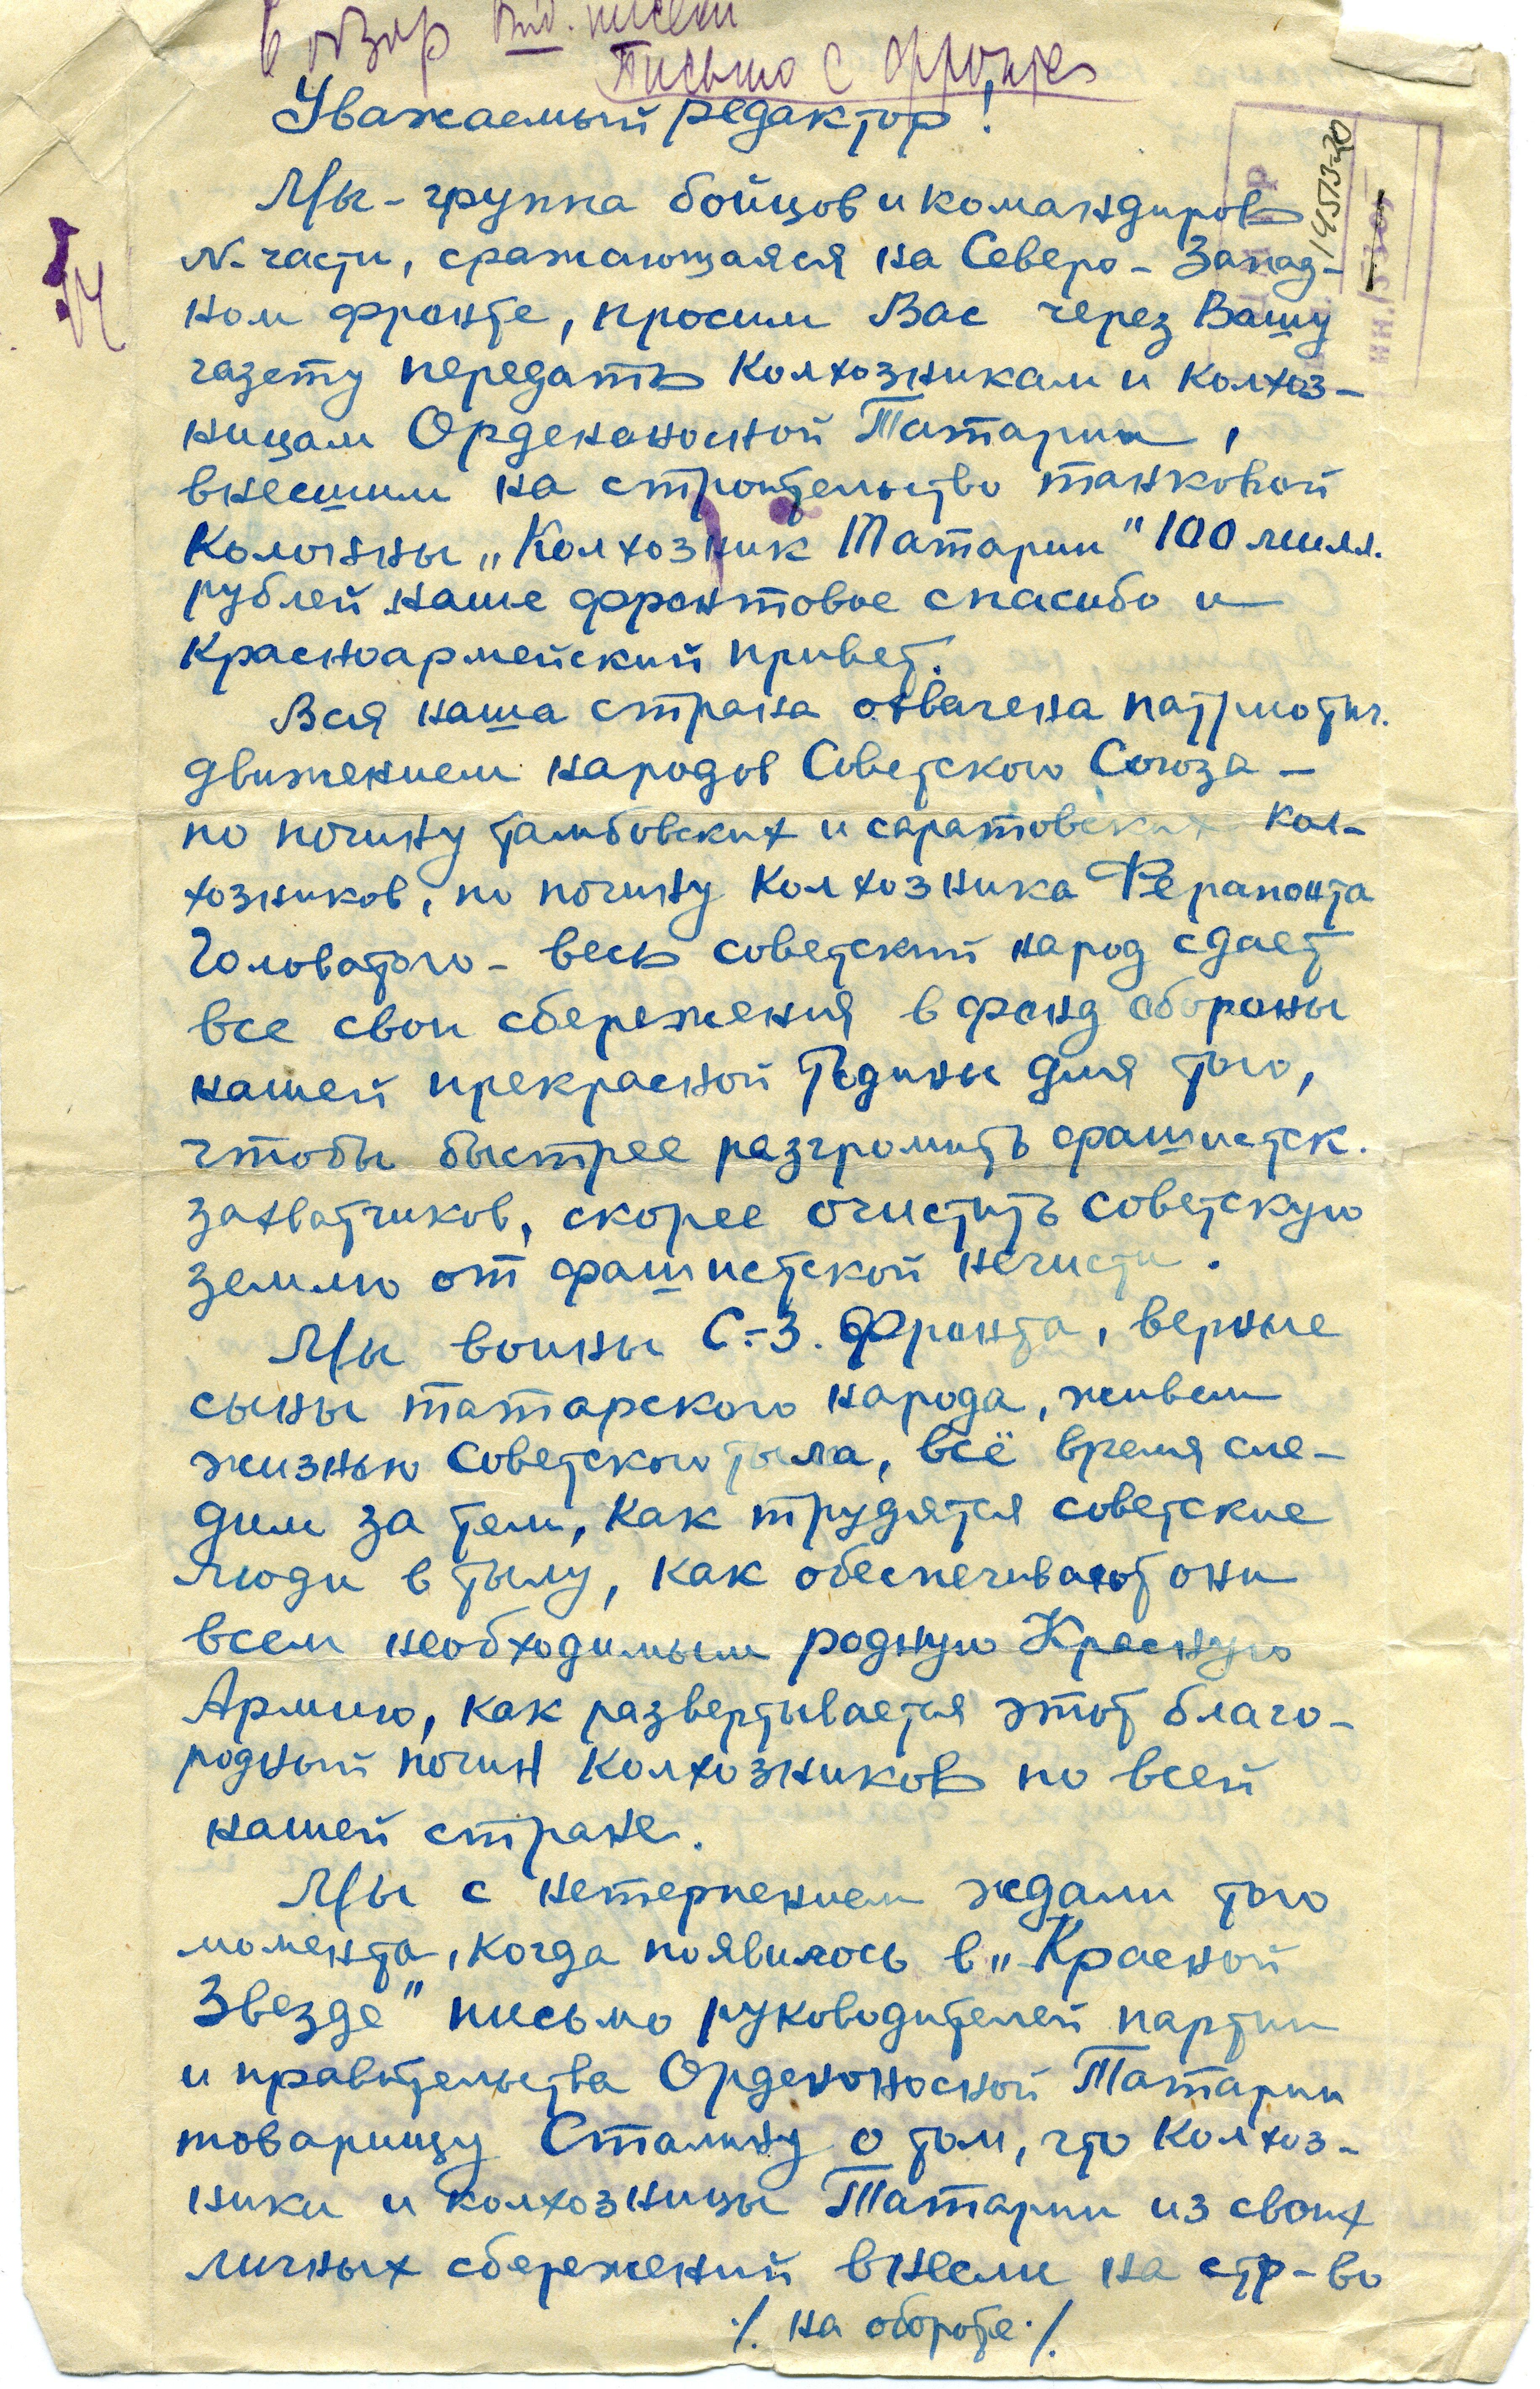 В обзор
Письмо с фронта
Уважаемый редактор!
Мы - группа бойцов и командиров
N-части, сражающаяся на Северо-Запад-
ном фронте, просим Вас через Вашу
газету передать колхозникам и колхоз-
ницам Орденоносной Татарии,
внесшим на строительство танковой
колонны „Колхозник Татарии" 100 милл.
рублей наше фронтовое спасибо и
красноармейский привет.
Вся наша страна охвачена патриотич.
движением народов Советского Союза -
по почину тамбовских и саратовских кол-
хозников, по почину колхозника Ферапонта
Головатого - весь советский народ сдает
все свои сбережения в фонд обороны
нашей прекрасной Родины для того,
чтобы быстрее разгромить фашистск.
захватчиков, скорее очистить советскую
землю от фашистской нечисти.
Мы воины С.-З. Фронта, верные
сыны татарского народа, живем
жизнью советского тыла, всё время сле-
дим за тем, как трудятся советские
люди в тылу, как обеспечивают они
всем необходимым родную Красную
Армию, как развертывается этот благо-
родный почин колхозников по всей
нашей стране.
Мы с нетерпением ждали того
момента, когда появилось в „Красной
Звезде" письмо руководителей партии
и правительства Орденоносной Татарии
товарищу Сталину о том, что колхоз-
ники и колхозницы Татарии из своих
личных сбережений внесли на стр-во
./. на обороте ./.
14573-20